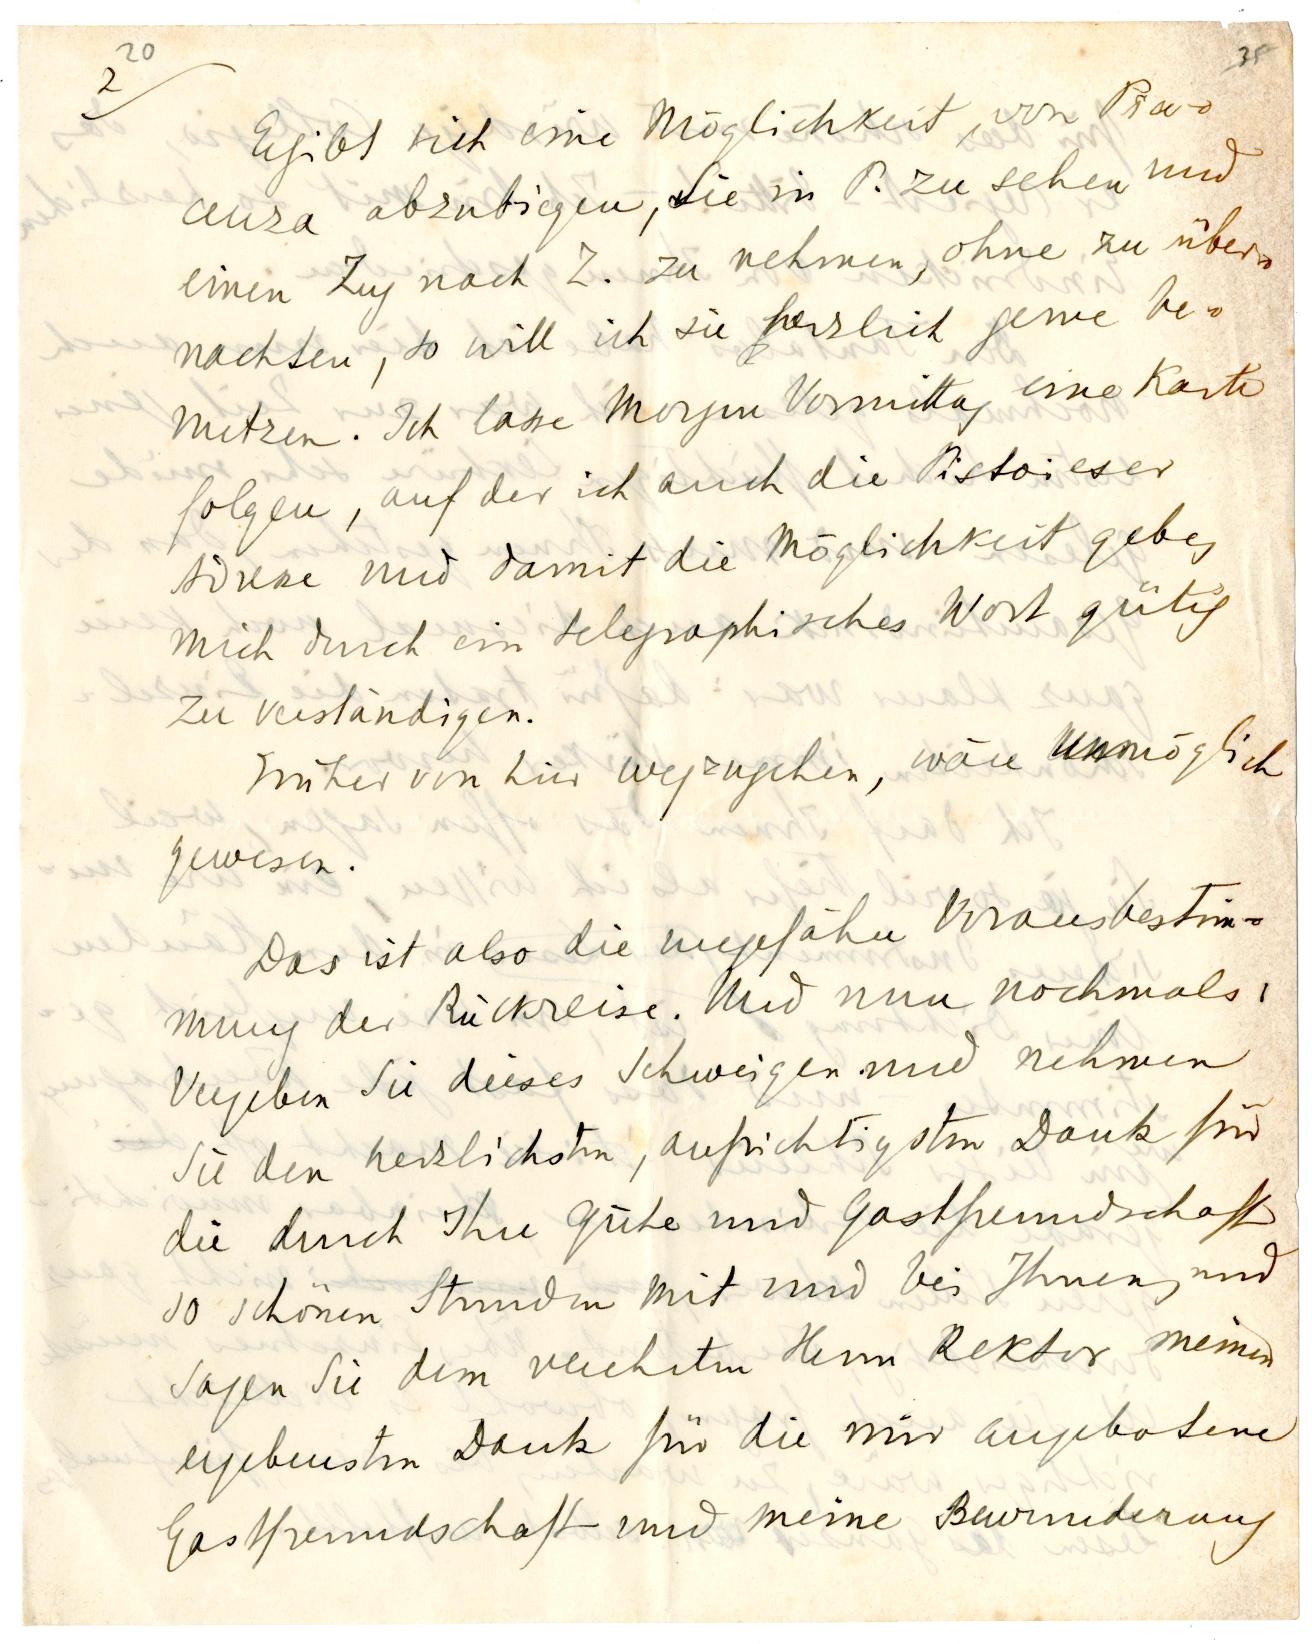 20
2
35
Ergibt sich eine Möglichkeit, von Pia-
cenza abzubiegen, Sie in P. zu sehen und
einen Zug nach Z. zu nehmen, ohne zu über-
nachten, so will ich sie herzlich gerne be-
nutzen. Ich lasse Morgen Vormittag eine Karte
folgen, auf der ich auch die Pistoieser
Adresse und damit die Möglichkeit gebe,
mich durch ein telegraphisches Wort gütig
zu verständigen.
Früher von hier wegzugehen, wäre unmöglich
gewesen.
Das ist also die ungefähre Vorausbestim-
mung der Rückreise. Und nun nochmals:
Vergeben Sie dieses Schweigen und nehmen
Sie den herzlichsten, aufrichtigsten Dank für
die durch Ihre Güte und Gastfreundschaft
so schönen Stunden mit und bei Ihnen, und
sagen Sie dem verehrten Herrn Rektor meinen
ergebensten Dank für die mir angebotene
Gastfreundschaft und meine Bewunderung